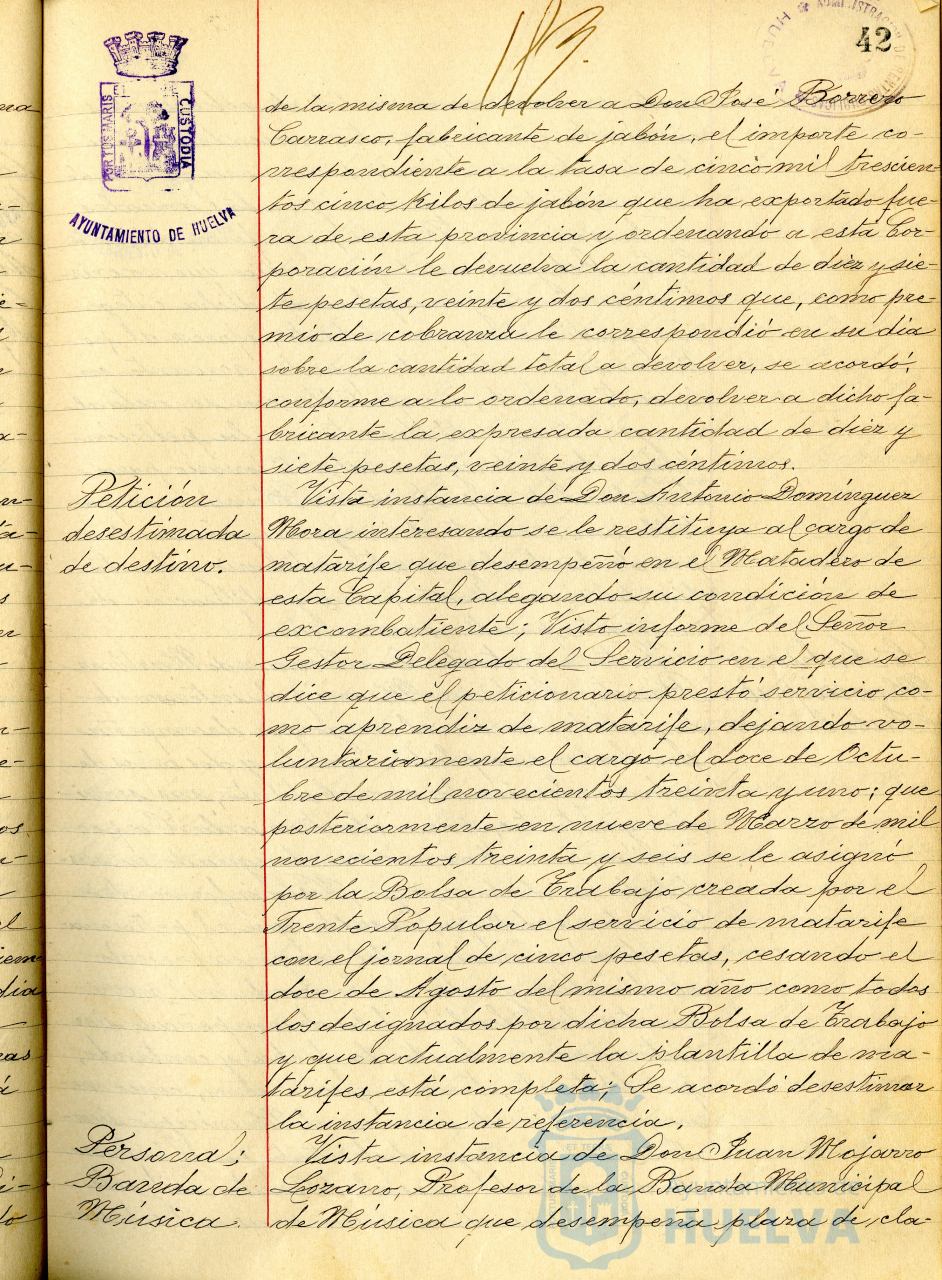 113.
42
PORTUS MARIS
CUSTODIA
AYUNTAMIENTO DE HUELVA
de la misma de devolver a Don Jose Borrero
Carrasco, fabricante de jabón, el importe co-
rrespondiente a la tasa de cinco mil trescien-
tos cinco kilos de jabón que ha exportado fue-
ra de esta provincia y ordenando a esta Cor-
poración le devuelva la cantidad de diez y sie-
te pesetas, veinte y dos céntimos que, como pre-
mio de cobranza le correspondió en su dia
sobre la cantidad total a devolver, se acordó,
conforme a lo ordenado, devolver a dicho fa-
bricante la expresada cantidad de diez y
siete pesetas, veinte y dos céntimos.
Petición
desestimada
de destino.
Vista instancia de Don Antonio Domínguez
Mora interesando se le restituya al cargo de
matarife que desempeñó en el Matadero de
esta Capital, alegando su condición de
excombatiente; Visto informe del Señor
Gestor Delegado del Servicio en el que se
dice que el peticionario prestó servicio co-
mo aprendiz de matarife, dejando vo-
luntariamente el cargo el doce de Octu-
bre de mil novecientos treinta y uno; que
posteriormente en nueve de Marzo de mil
novecientos treinta y seis se le asignó
por la Bolsa de Trabajo creada por el
Frente Popular el servicio de matarife
con el jornal de cinco pesetas, cesando el
doce de Agosto del mismo año como todos
los designados por dicha Bolsa de Trabajo
y que actualmente la plantilla de ma-
tarifes está completa; Se acordó desestimar
la instancia de referencia.
Personal;
Banda de
Música.
Vista instancia de Don Juan Mojarro
Lozano, Profesor de la Banda Municipal
de Música que desempeña plaza de cla-
HUELVA